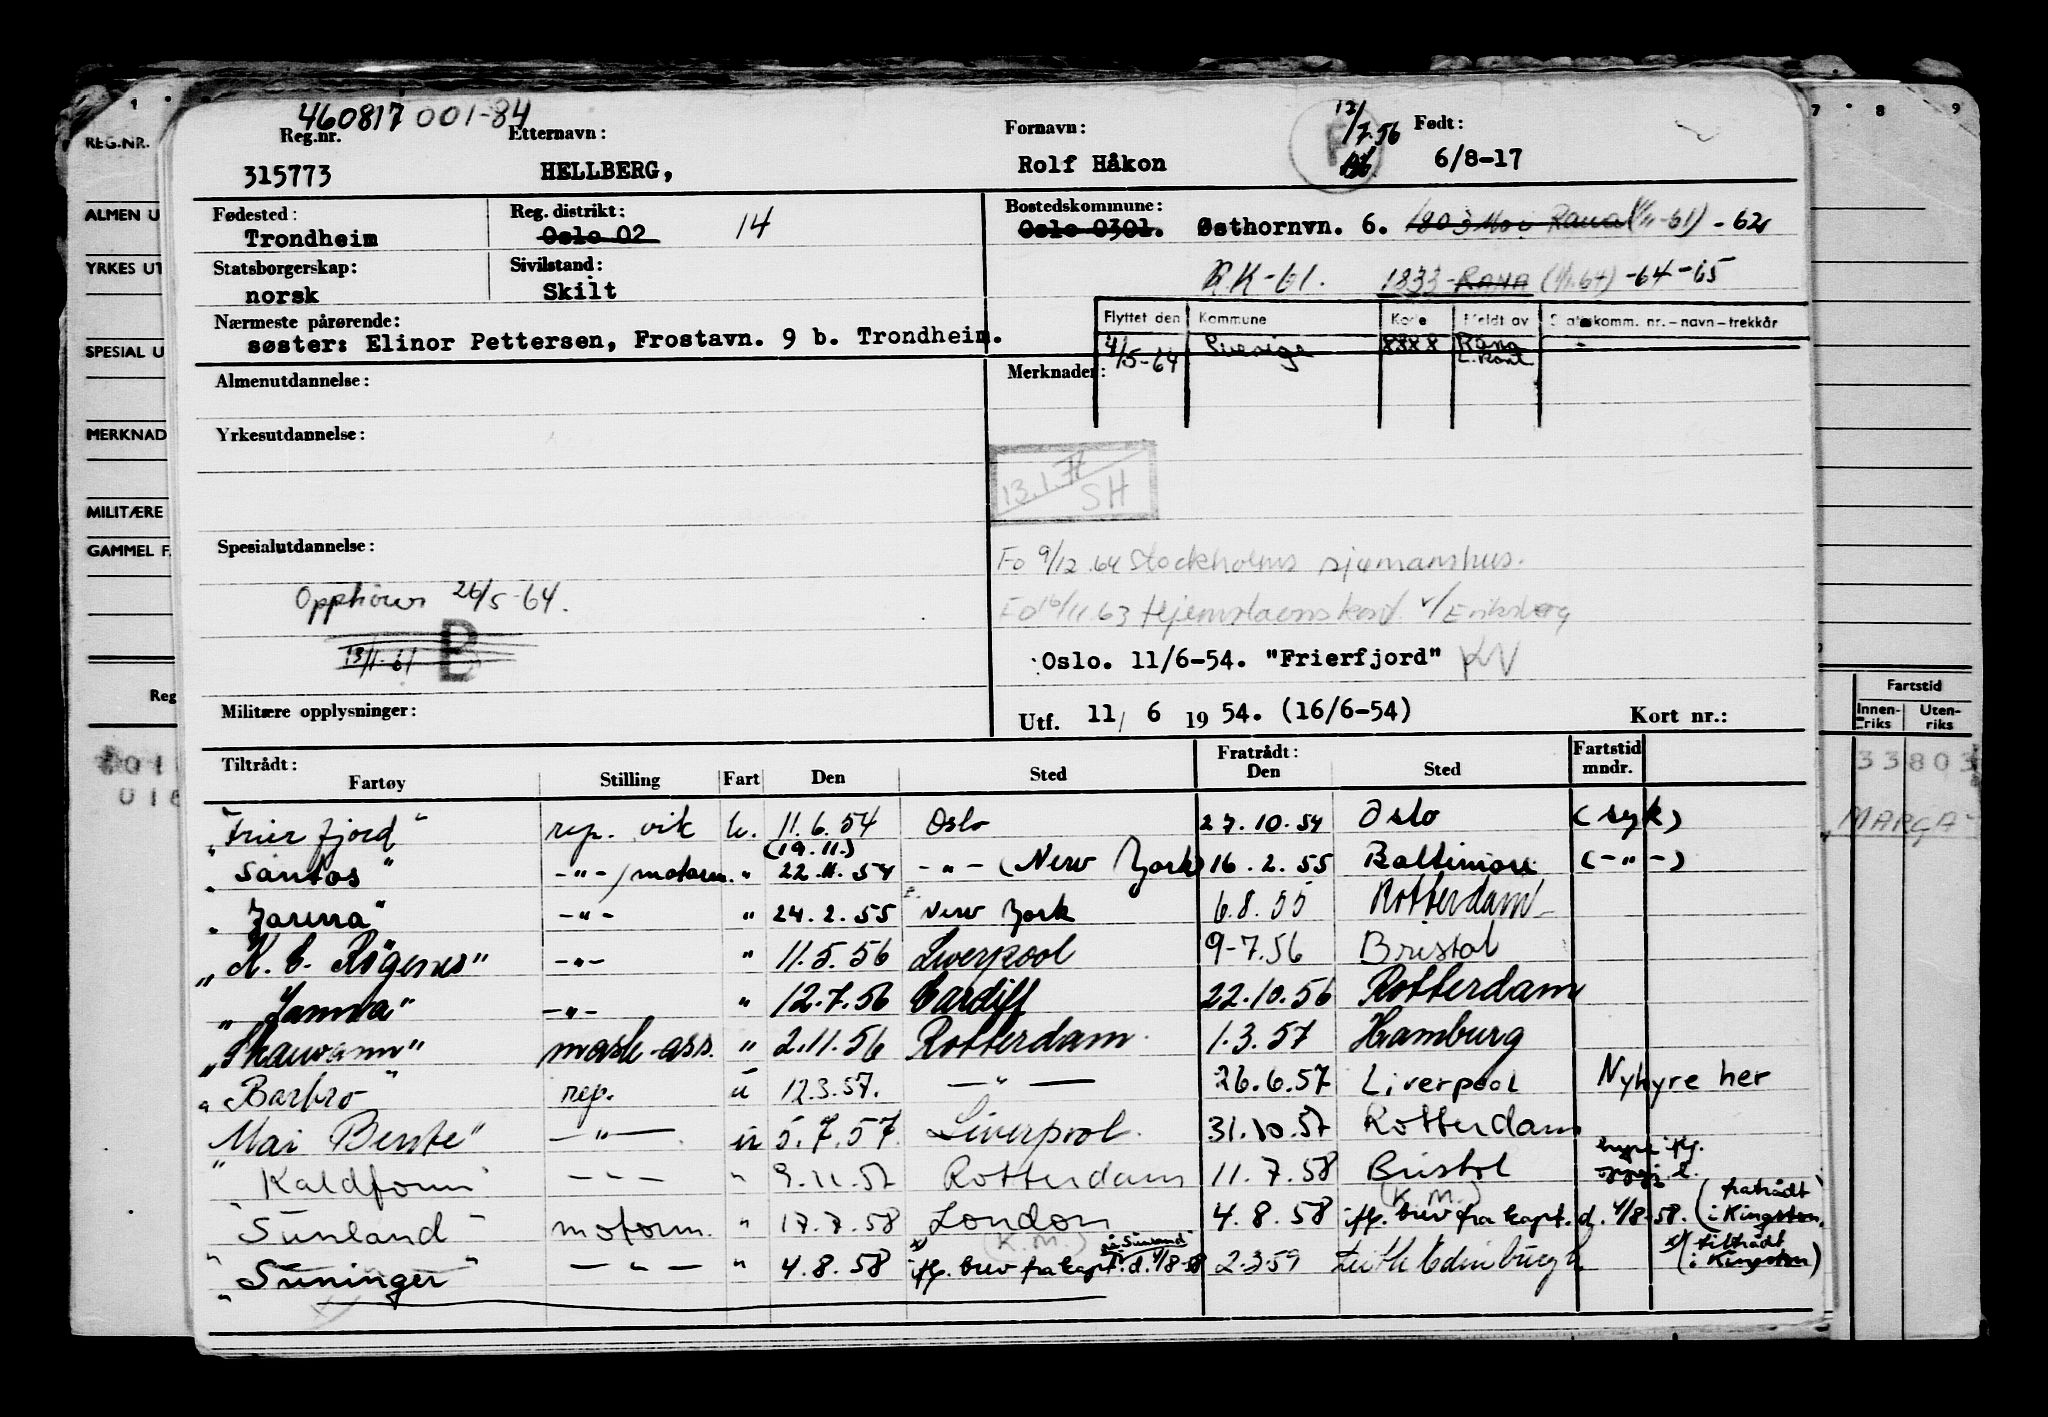 460817 001-84
Reg.nr. Etternavn: Fornavn: 12/7.56 Født:
315773 HELLBERG, Rolf Håkon 6/8-17
Fødested: Reg. distrikt: 14 Bostedskommune:
Trondheim Oslo 02 Oslo 0301. Østhornvn. 6. 1803 Mo i Rana (1/11-61) - 62
Statsborgerskap: Sivilstand: RK-61. 1833-RANA (1/1.64) -64-65
norsk Skilt
Nærmeste pårørende: Flyttet den Kommune Kode Meldt av Skattekomm. nr. - navn - trekkår
søster: Elinor Pettersen, Frostavn. 9 b. Trondheim. 4/5-64 Sverige 8888 Rana
Almenutdannelse: Merknader:
Yrkesutdannelse:
13.1.71 SH
Spesialutdannelse: Fo 9/12.64 Stockholms sjømanshus.
Opphører 26/5-64. Fo 16/11.63 v/Eriksberg
13/11-61 B Oslo. 11/6-54. "Frierfjord" KV
Militære opplysninger: Utf. 11/ 6 19 54. (16/6-54) Kort nr.:
Tiltrådt: Fratrådt: Fartstid
Fartøy Stilling Fart Den Sted Den Sted mndr.
"Frierfjord" rep. vik u. 11.6.54 Oslo 27.10.54 Oslo (syk)
(19.11.)
"Santos" -"-/motorm. " 22.11.54 -"- (New York) 16.2.55 Baltimore (-"-)
-"- " 24.2.55 New York 6.8.55 Rotterdam
"K. C. Rogenes" -"- " 11.5.56 Liverpool 9-7.56 Bristol
-"- " 12.7.56 Cardiff 22.10.56 Rotterdam
"Skauvann" mask-ass. " 2.11.56 Rotterdam 1.3.57 Hamburg
"Barbro" rep. u 12.3.57. -"- 26.6.57 Liverpool Nyhyre her
"Mai Bente" -"- u 5.7.57. Liverpool. 31.10.57 Rotterdam
"Kaldfonn" -"- " 9.11.57 Rotterdam 11.7.58 Bristol
"Sunland" motorm. " 17.7.58 London 4.8.58 (K.M.) iflg. brev fra kapt. d. 4/8-58. (fratrådt i Kingston.
"Suninger" -"- " 4.8.58 (K.M.) iflg. brev fra kapt. d. 4/8-58 2-3-59 Leith Edinburgh x) tiltrådt (i Kingston)
REG.NR.
ALMEN U
YRKES UT
SPESIAL U
MERKNAD
MILITÆRE
GAMMEL F
Reg
7 8 9
Fartstid
Innenriks Utenriks
33803
MARGA